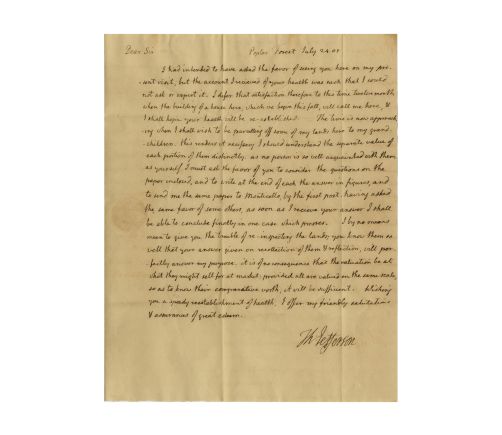 Dear Sir Poplar Forest July 24. 05
I had intended to have asked the favor of seeing you here on my pre-
sent visit, but the account I recieved of your health was such that I could
not ask or expect it. I defer that satisfaction therefore to this time twelvemonth
when the building of a house here, which we begin this fall, will call me here, &
I shall hope your health will be re-established. The time is now approach-
ing when I shall wish to be parcelling off some of my lands here to my grand-
children. this renders it necessary I should understand the separate value of
each portion of them distinctly. as no person is so well acquainted with them
as yourself I must ask the favor of you to consider the questions on the
paper inclosed, and to write at the end of each the answer in figures, and
to send me the same paper to Monticello, by the first post. having asked
the same favor of some others, as soon as I recieve your answer I shall
be able to conclude finally in one case which presses. I by no means
mean to give you the trouble of re inspecting the lands; you know them so
well that your answer given on recollection of them & reflection, will per-
fectly answer my purpose. it is of no consequence that the valuation be at
what they might sell for at market: provided all are valued on the same scale,
so as to know their comparative worth, it will be sufficient. Wishing
you a speedy reestablishment of health, I offer my friendly salutations
& assurances of great esteem.
Th Jefferson